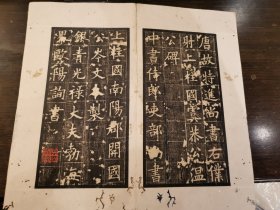 唐故特進尚書右僕
射上柱國虞恭公溫
公碑
中書侍郎部書
上柱國南陽郡開國
公岑文本製
銀青光祿大夫勃海
男歐陽詢書